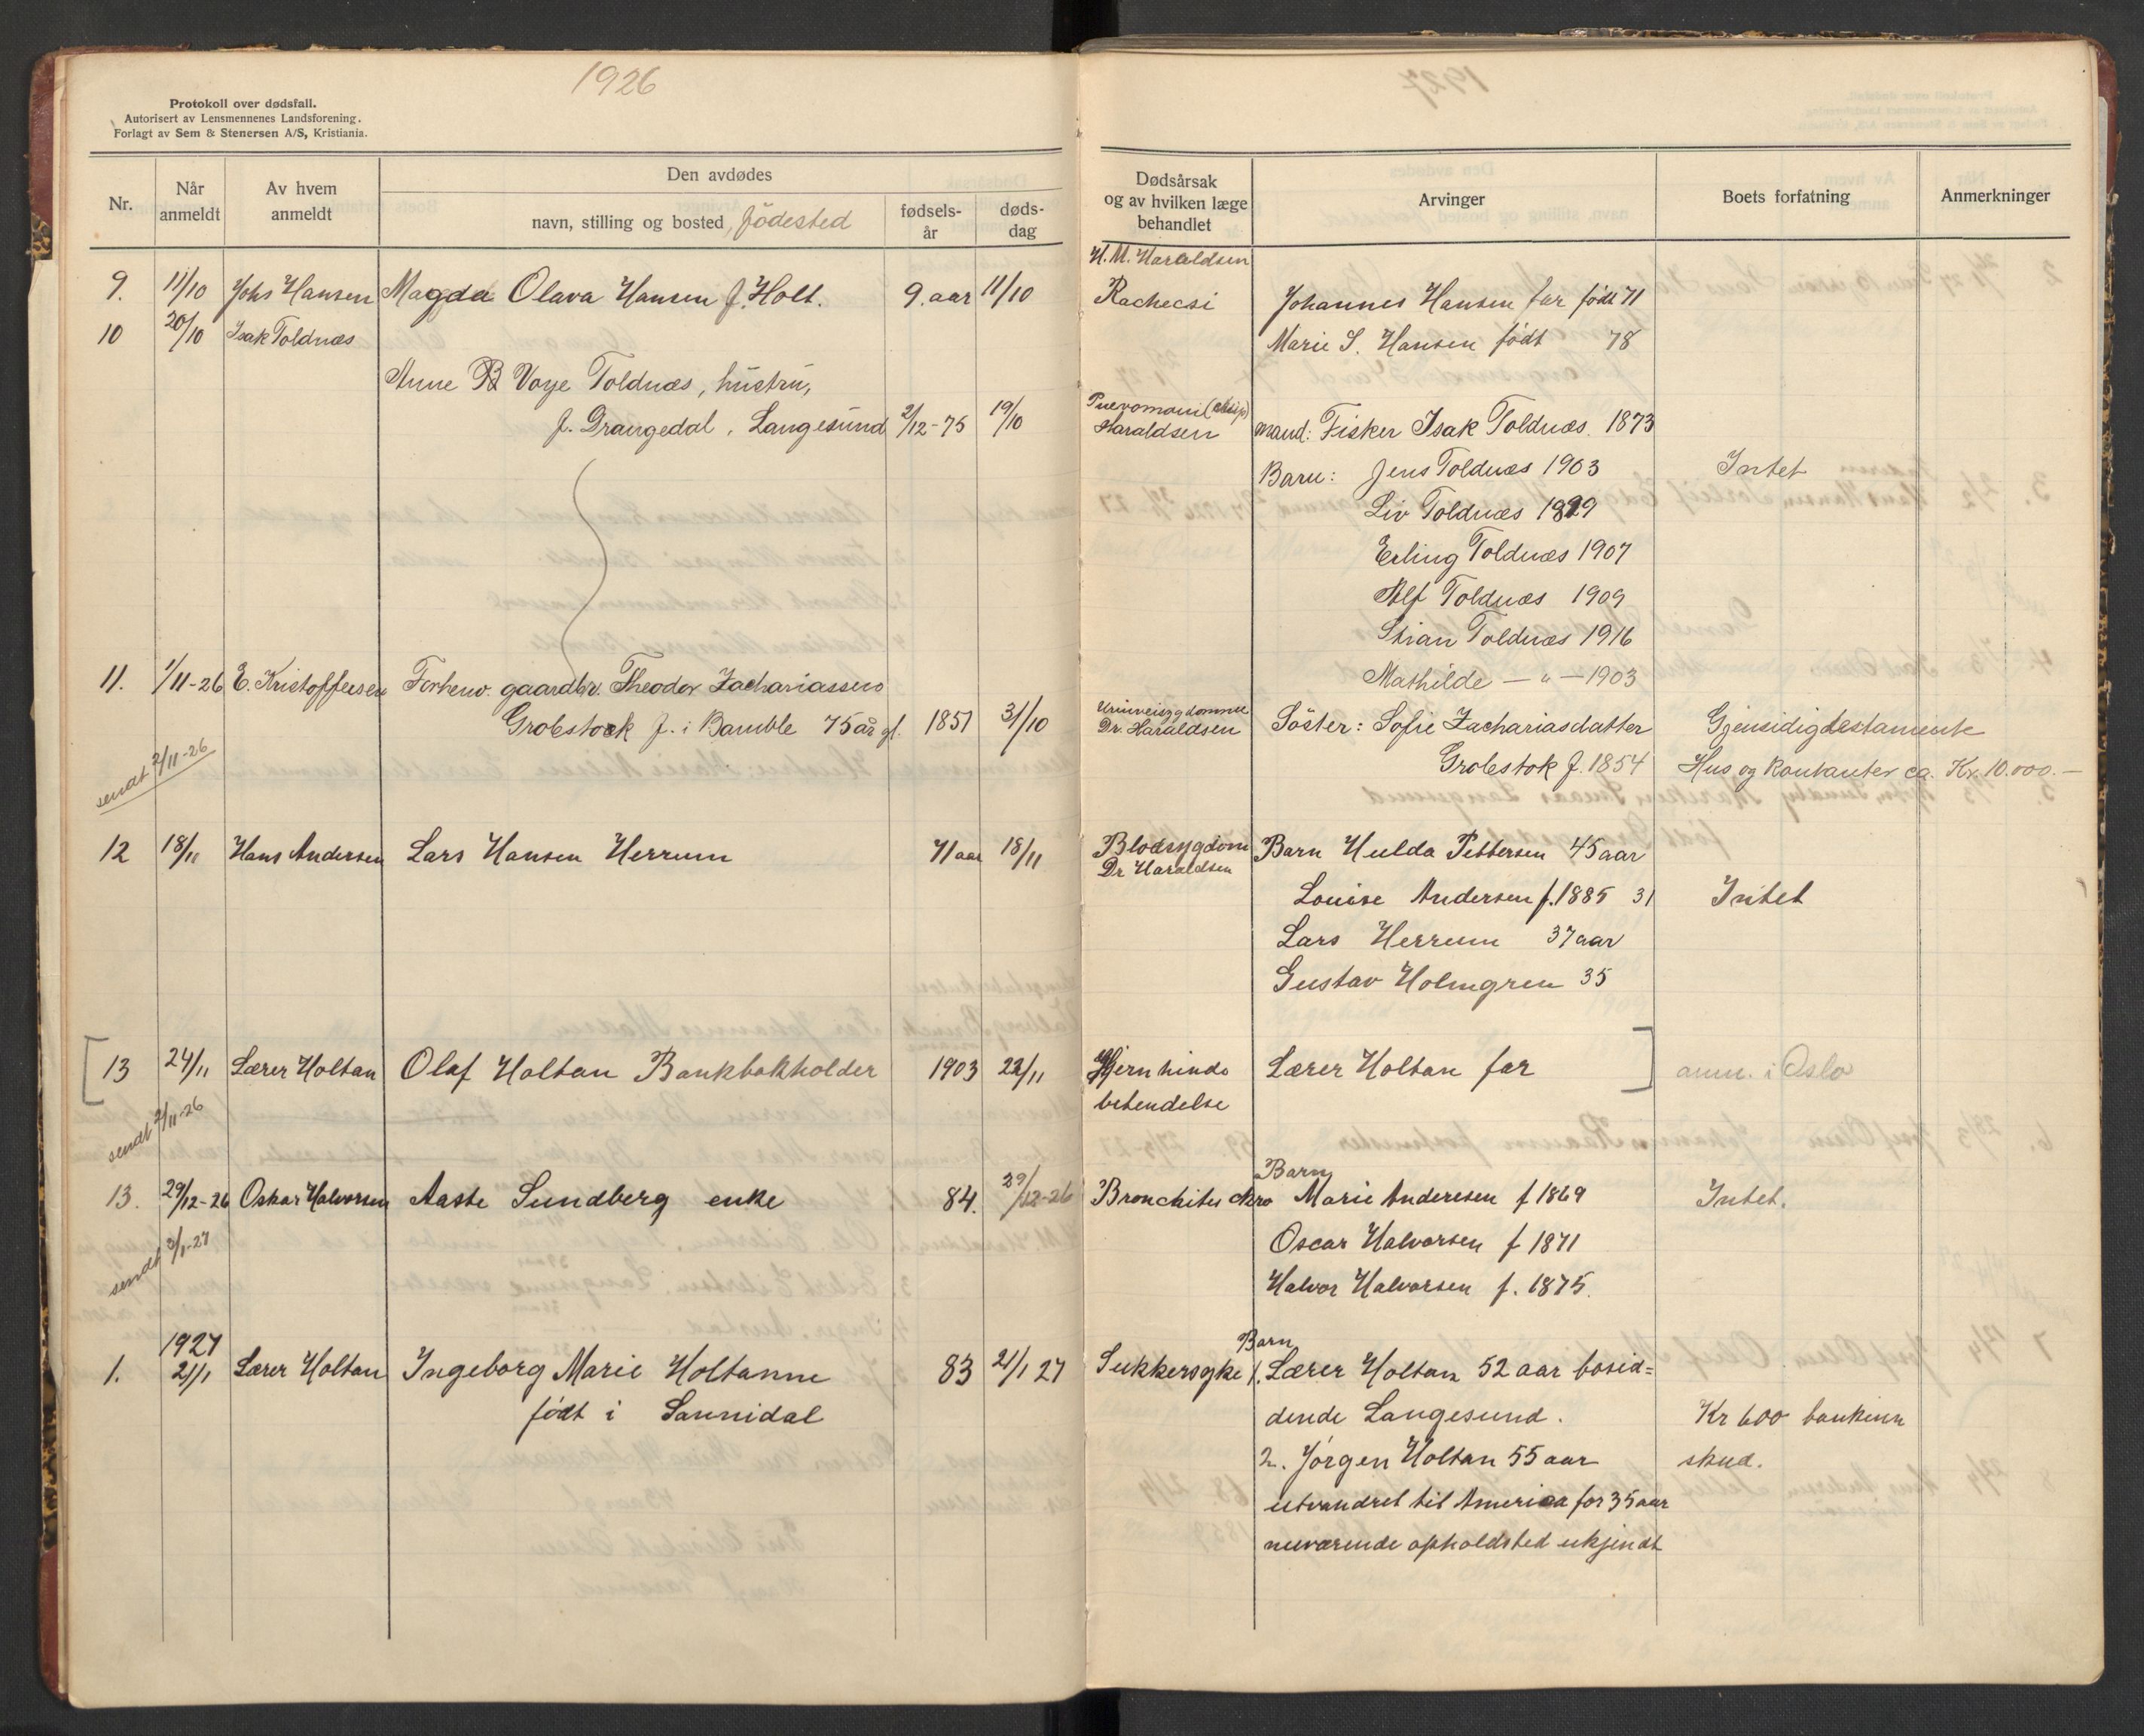 1926
Protokoll over dødsfall.
Autorisert av Lensmennenes Landsforening.
Forlagt av Sem & Stenersen A/S, Kristiania.
Nr.
Når anmeldt
Av hvem anmeldt
Den avdødes
navn, stilling og bosted, födested
fødsels-år
døds-dag
Dødsårsak og av hvilken læge behandlet
Arvinger
Boets forfatning
Anmerkninger
H. M. Haraldsen
9. 11/10 Johs Hansen Magda Olava Hansen f. Holt. 9. aar 11/10 Rachecsi Johannes Hansen far födt 71
10 20/10 Isak Toldnæs Marie S. Hansen födt 78
Anne B Voje Toldnæs, hüstrü,
f. Drangedal, Langesünd 2/12-75 19/10 Haraldsen mand: Fisker Isak Toldnæs. 1873
Barn: Jens Toldnæs 1903 Intet
Liv Toldnæs
Erling Toldnæs 1907
Alf Toldnæs 1909
Stian Toldnæs 1916
Mathilde — " — 1903
11. 1/11-26 E. Kristoffersen Forhenv. gaardbr. Theodor Zachariassen
Grobstock f. i Bamble 75 år gl. 1851 31/10 Dr. Haraldsen Söster: Sofie Zachariasdatter Gjensidig testamente
Grobstok f. 1854 Hus og kontanter ca. Kr. 10.000.—
sendt 2/11-26
12 18/11 Hans Andersen Lars Hansen Herrum 71 aar 18/11 Blodsygdom Barn Hulda Pettersen 45 aar
Dr Haraldsen
Louise Andersen f. 1885 31 Intet
Lars Herrum 37 aar
Gustav Holmgren 35
13 24/11 Lærer Holtan Olaf Holtan Bankbokholder 1903 22/11 Hjernhinds Lærer Holtan far anm. i Oslo
betendelse
sendt 2/11-26
Barn
13. 29/12-26 Oskar Halvorsen Aaste Sundberg enke 84. 29/12-26 Bronchitis ckro Marie Anderesen f 1869 Intet.
Oscar Halvorsen f 1871
sendt 3/1-27
Halvor Halvorsen f. 1875.
1927
Barn
1. 21/1 Lærer Holtan Ingeborg Marie Holtanne 83 21/1 27 Sukkersyke 1. Lærer Holtan 52 aar bosid=
født i Sannidal dende Langesund. Kr 600 bankinn
2. Jørgen Holtan 55 aar skud.
utvandret til America for 35 aar
nuværende opholdsted ukjendt